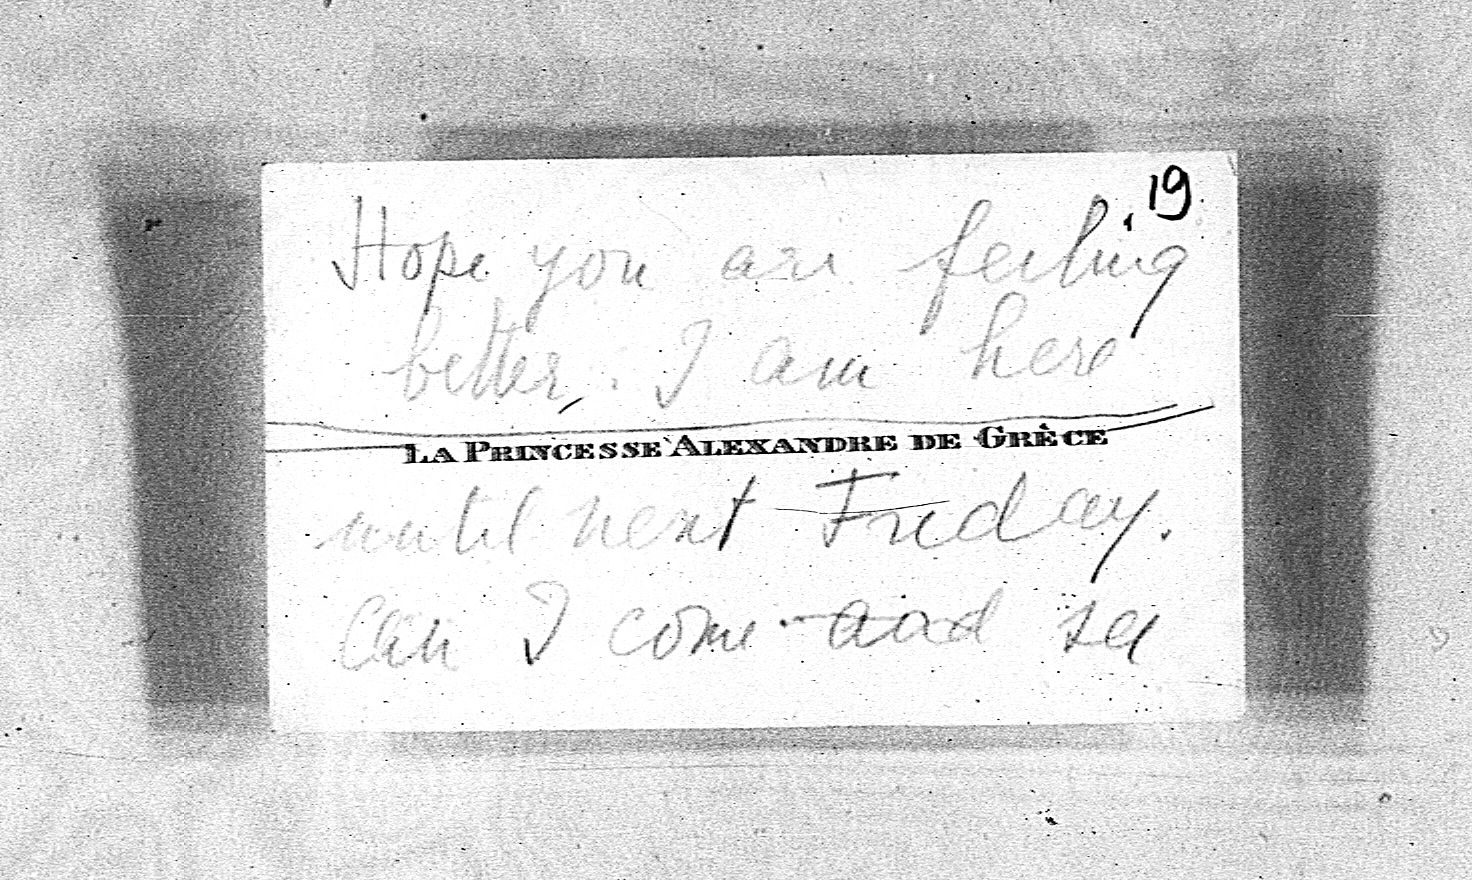 19
Hope you are feeling
better. I am here
LA PRINCESSE ALEXANDRE DE GRÈCE
until next Friday.
Can I come and see